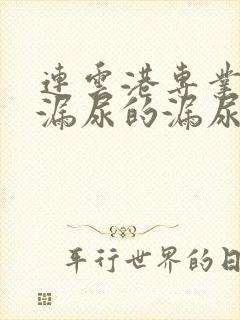 連雲港專業
漏尿的漏尿
平行世界的日